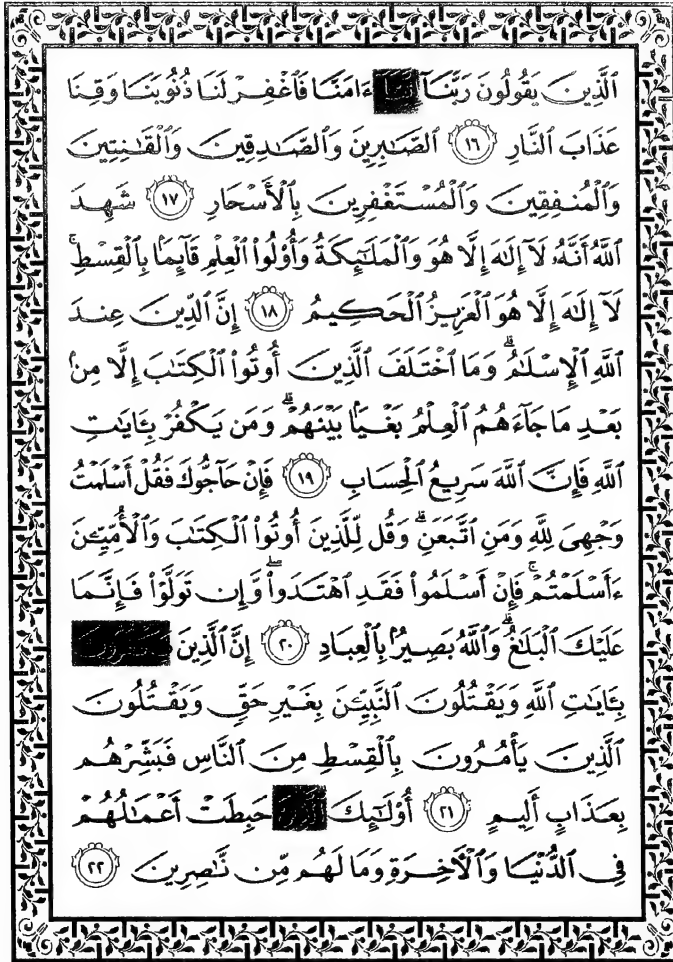 ٱلَّذِينَ يَقُولُونَ رَبَّنَآ ءَامَنَّا فَٱغْفِرْ لَنَا ذُنُوبَنَا وَقِنَا
عَذَابَ ٱلنَّارِ ١٦ ٱلصَّٰبِرِينَ وَٱلصَّٰدِقِينَ وَٱلْقَٰنِتِينَ
وَٱلْمُنفِقِينَ وَٱلْمُسْتَغْفِرِينَ بِٱلْأَسْحَارِ ١٧ شَهِدَ
ٱللَّهُ أَنَّهُۥ لَآ إِلَٰهَ إِلَّا هُوَ وَٱلْمَلَٰٓئِكَةُ وَأُو۟لُوا۟ ٱلْعِلْمِ قَآئِمًۢا بِٱلْقِسْطِ ۚ
لَآ إِلَٰهَ إِلَّا هُوَ ٱلْعَزِيزُ ٱلْحَكِيمُ ١٨ إِنَّ ٱلدِّينَ عِندَ
ٱللَّهِ ٱلْإِسْلَٰمُ ۗ وَمَا ٱخْتَلَفَ ٱلَّذِينَ أُوتُوا۟ ٱلْكِتَٰبَ إِلَّا مِنۢ
بَعْدِ مَا جَآءَهُمُ ٱلْعِلْمُ بَغْيًۢا بَيْنَهُمْ ۗ وَمَن يَكْفُرْ بِـَٔايَٰتِ
ٱللَّهِ فَإِنَّ ٱللَّهَ سَرِيعُ ٱلْحِسَابِ ١٩ فَإِنْ حَآجُّوكَ فَقُلْ أَسْلَمْتُ
وَجْهِىَ لِلَّهِ وَمَنِ ٱتَّبَعَنِ ۗ وَقُل لِّلَّذِينَ أُوتُوا۟ ٱلْكِتَٰبَ وَٱلْأُمِّيِّـۧنَ
ءَأَسْلَمْتُمْ ۚ فَإِنْ أَسْلَمُوا۟ فَقَدِ ٱهْتَدَوا۟ ۖ وَّإِن تَوَلَّوْا۟ فَإِنَّمَا
عَلَيْكَ ٱلْبَلَٰغُ ۗ وَٱللَّهُ بَصِيرٌۢ بِٱلْعِبَادِ ٢٠ إِنَّ ٱلَّذِينَ
بِـَٔايَٰتِ ٱللَّهِ وَيَقْتُلُونَ ٱلنَّبِيِّـۧنَ بِغَيْرِ حَقٍّ وَيَقْتُلُونَ
ٱلَّذِينَ يَأْمُرُونَ بِٱلْقِسْطِ مِنَ ٱلنَّاسِ فَبَشِّرْهُم
بِعَذَابٍ أَلِيمٍ ٢١ أُو۟لَٰٓئِكَ حَبِطَتْ أَعْمَٰلُهُمْ
فِى ٱلدُّنْيَا وَٱلْءَاخِرَةِ وَمَا لَهُم مِّن نَّٰصِرِينَ ٢٢